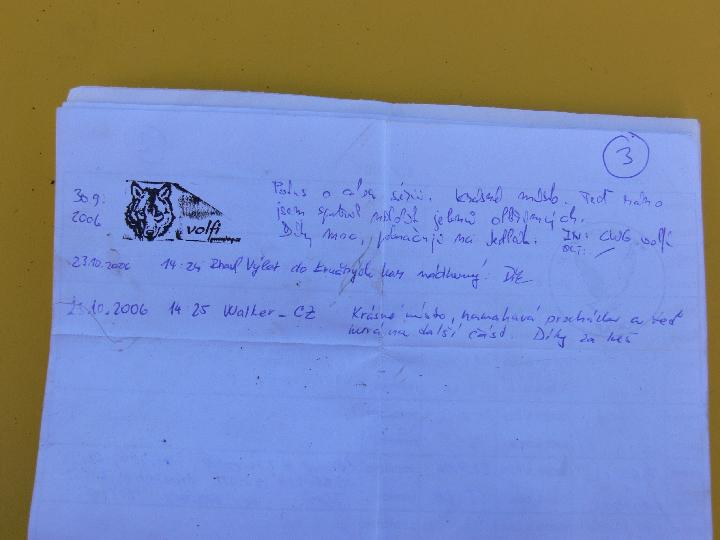 3
30.9.
2006
volfi
Pokus o celou sérii. Krásné místo. Teď ráno
jsem
Díky moc, pokračuji na Jedlák. IN: CWG volfi
OUT: /
23.10.2006 14:24 Výlet do hor nádherný! Díky
23.10.2006 14:25 Walker_CZ Krásné místo, namahavá procházka a teď
hurá na další část. Díky za keš